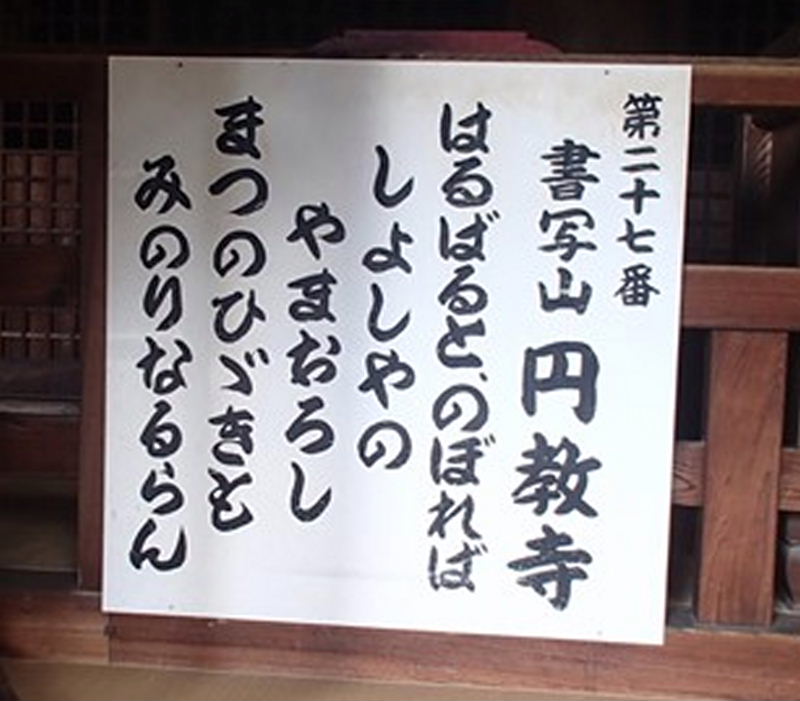 第二十七番
書写山 円教寺
はるばると、のぼれば
しよしやの
やまおろし
まつのひゞきも
みのりなるらん